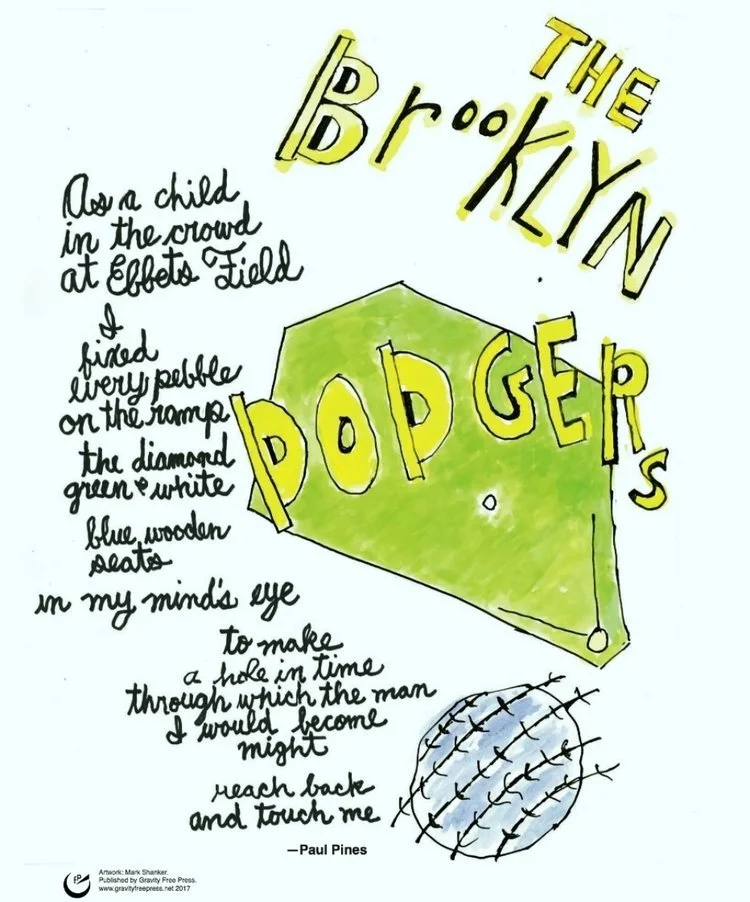 THE
BrooKLYN
DODGERS
As a child
in the crowd
at Ebbets Field
I
fixed
every pebble
on the ramp
the diamond
green & white
blue wooden
seats
in my mind's eye
to make
a hole in time
through which the man
I would become
might
reach back
and touch me
—Paul Pines
FP
Artwork: Mark Shanker.
Published by Gravity Free Press.
www.gravityfreepress.net 2017